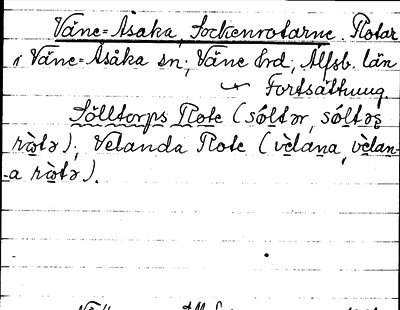 Väne-Åsaka, Sockenrotarne. Rotar
i Väne-Åsaka sn; Väne hrd; Älfsb. län
Fortsättning
Sölltorps Rote (sóltər, sóltəs̨
ròtə); Velanda Rote (vèlana, vèlan-
-a ròtə).